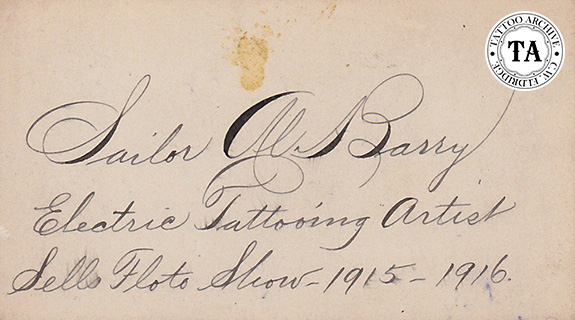 Sailor Al Barry
Electric Tattooing Artist
Sells Floto Show - 1915 - 1916.
TATTOO ARCHIVE
TA
C.W. ELDRIDGE